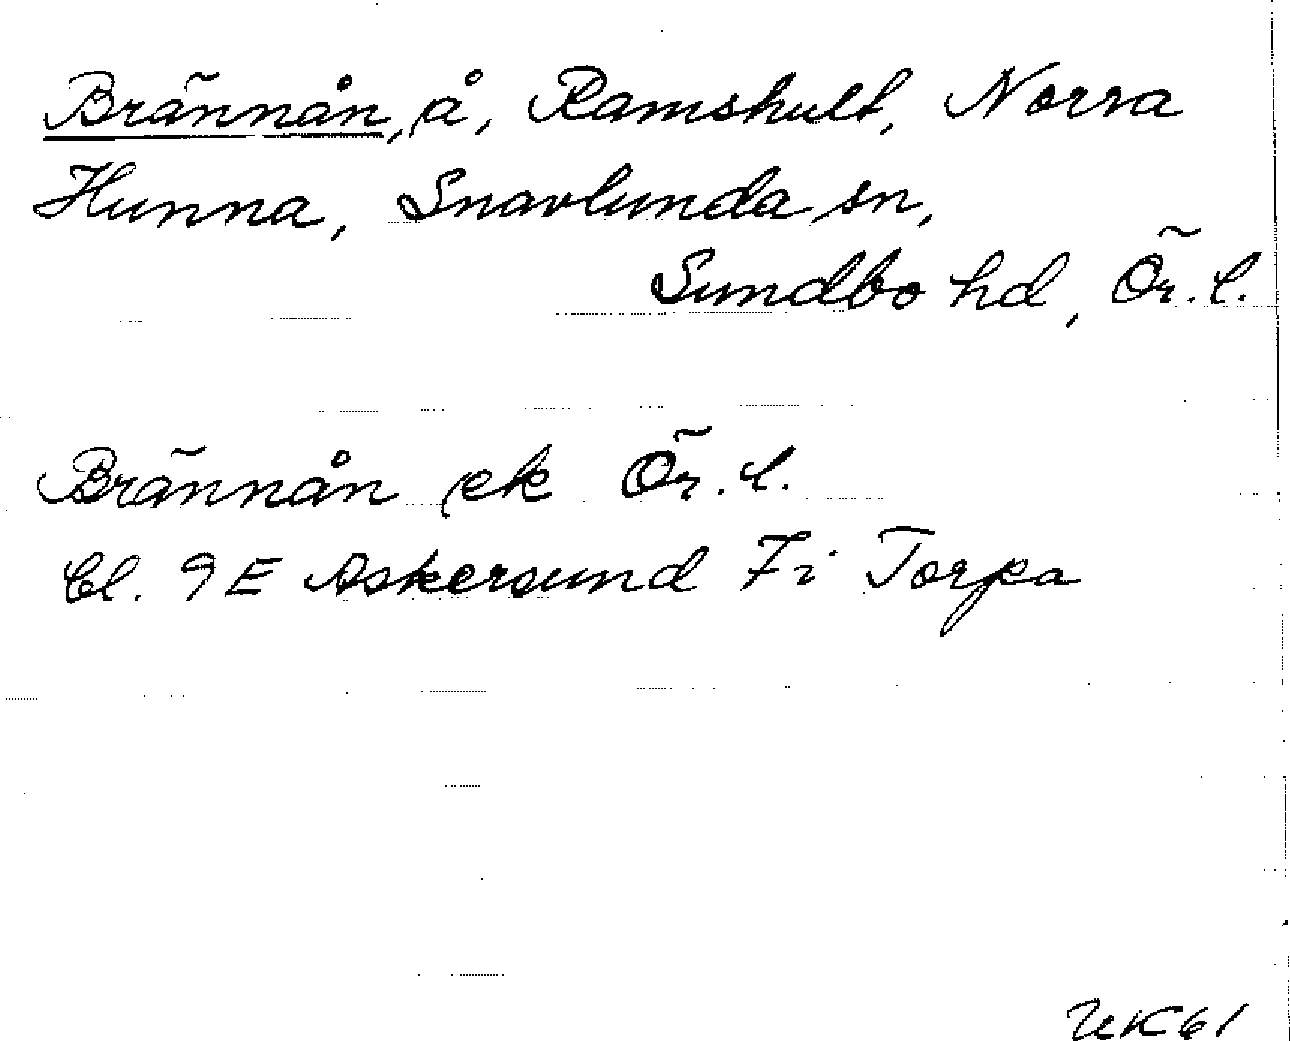 Brännån, å, Ramshult, Norra
Hunna, Snavlunda sn,
Sundbo hd, Ör. l.
Brännån ek Ör. l.
Bl. 9E Askersund 7i Torpa
UK61